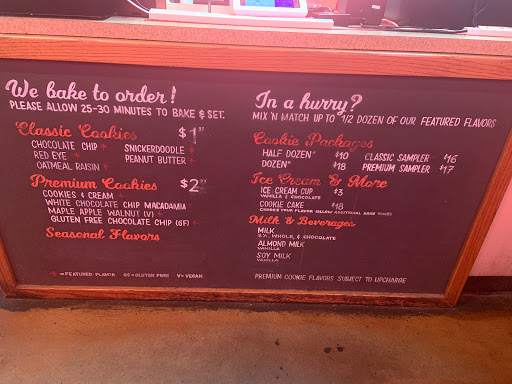 We bake to order!
PLEASE ALLOW 25-30 MINUTES TO BAKE & SET.
Classic Cookies $1
CHOCOLATE CHIP + SNICKERDOODLE +
RED EYE + PEANUT BUTTER +
OATMEAL RAISIN +
Premium Cookies $2
COOKIES & CREAM +
WHITE CHOCOLATE CHIP MACADAMIA
MAPLE APPLE WALNUT (V) +
GLUTEN FREE CHOCOLATE CHIP (GF) +
Seasonal Flavors
+ = FEATURED FLAVOR GF = GLUTEN FREE V = VEGAN
In a hurry?
MIX 'N MATCH UP TO 1/2 DOZEN OF OUR FEATURED FLAVORS
Cookie Packages
HALF DOZEN* $10 CLASSIC SAMPLER $16
DOZEN* $18 PREMIUM SAMPLER $17
Ice Cream & More
ICE CREAM CUP $3
VANILLA & CHOCOLATE
COOKIE CAKE $18
CHOOSE YOUR FLAVOR (ALLOW ADDITIONAL BAKE TIME)
Milk & Beverages
MILK
2%, WHOLE, & CHOCOLATE
ALMOND MILK
VANILLA
SOY MILK
VANILLA
PREMIUM COOKIE FLAVORS SUBJECT TO UPCHARGE